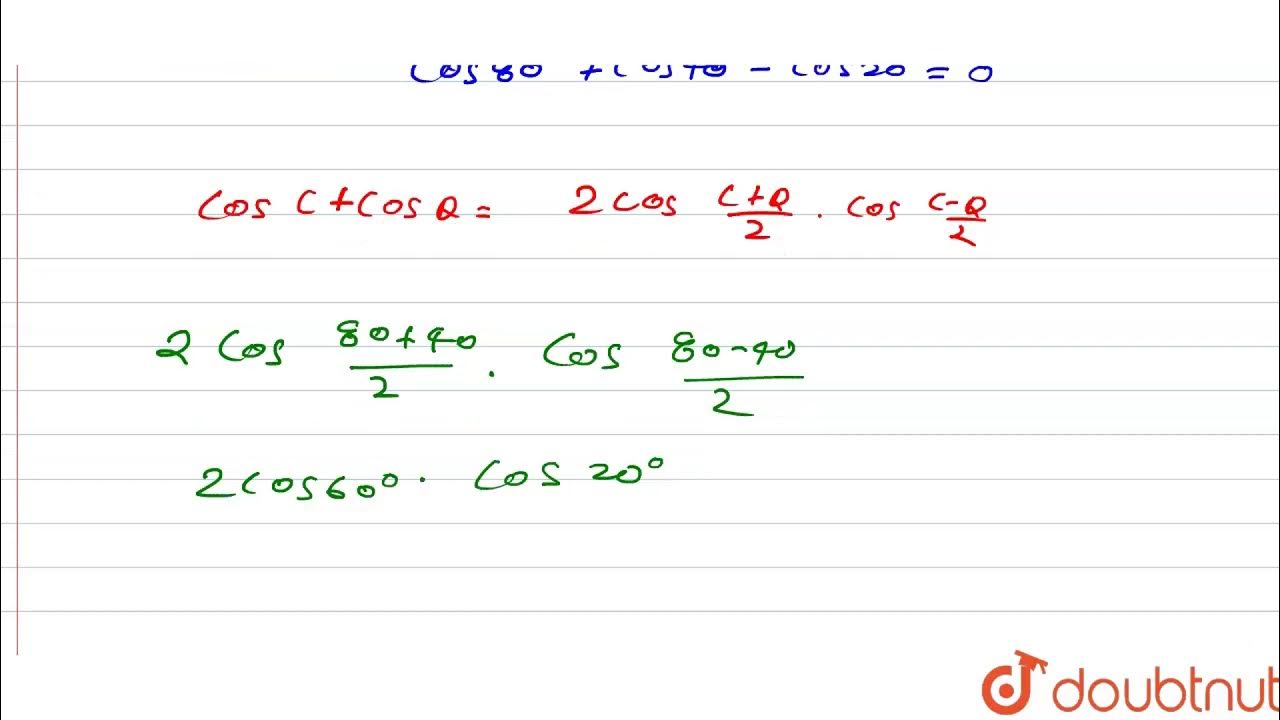 cos 80 + cos 40 - cos 20 = 0
cos C + cos Q = 2 cos (C+Q)/2 . cos (C-Q)/2
2 cos (80+40)/2 . cos (80-40)/2
2 cos 60° . cos 20°
doubtnut